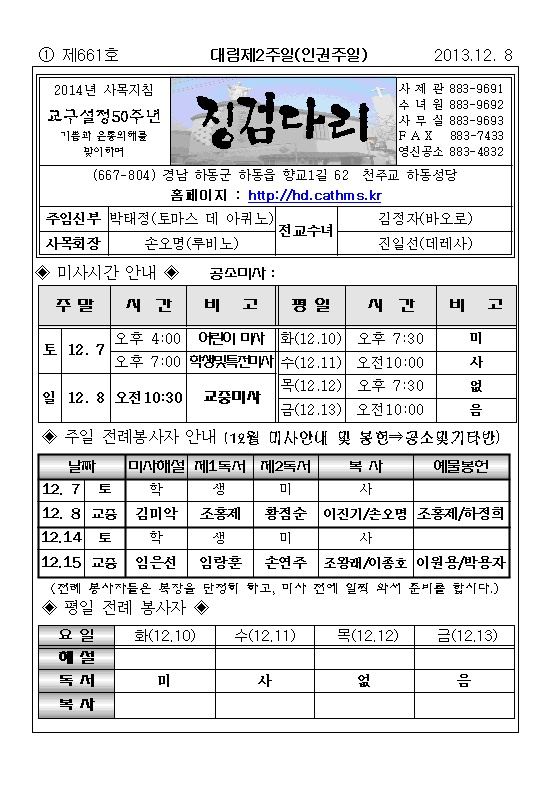 ① 제661호 대림제2주일(인권주일) 2013.12. 8
2014년 사목지침
교구설정50주년
기쁨과 은총의해를
맞이하며
징검다리
사 제 관 883-9691
수 녀 원 883-9692
사 무 실 883-9693
F A X 883-7433
영신공소 883-4832
(667-804) 경남 하동군 하동읍 향교1길 62 천주교 하동성당
홈페이지 : http://hd.cathms.kr
주임신부 박태정(토마스 데 아퀴노) 전교수녀 김정자(바오로)
사목회장 손오명(루비노) 진일선(데레사)
◈ 미사시간 안내 ◈ 공소미사 :
주 말 시 간 비 고 평 일 시 간 비 고
토 12. 7 오후 4:00 어린이 미사 화(12.10) 오후 7:30 미
오후 7:00 학생및특전미사 수(12.11) 오전10:00 사
일 12. 8 오전10:30 교중미사 목(12.12) 오후 7:30 없
금(12.13) 오전10:00 음
◈ 주일 전례봉사자 안내 (12월 미사안내 및 봉헌⇒공소및기타반)
날짜 미사해설 제1독서 제2독서 복 사 예물봉헌
12. 7 토 학 생 미 사
12. 8 교중 김미악 조홍제 황점순 이진기/손오명 조홍제/하정희
12.14 토 학 생 미 사
12.15 교중 임은선 임랑훈 손연주 조왕래/이종호 이원용/박용자
(전례 봉사자들은 복장을 단정히 하고, 미사 전에 일찍 와서 준비를 합시다.)
◈ 평일 전례 봉사자 ◈
요 일 화(12.10) 수(12.11) 목(12.12) 금(12.13)
해 설
독 서 미 사 없 음
복 사